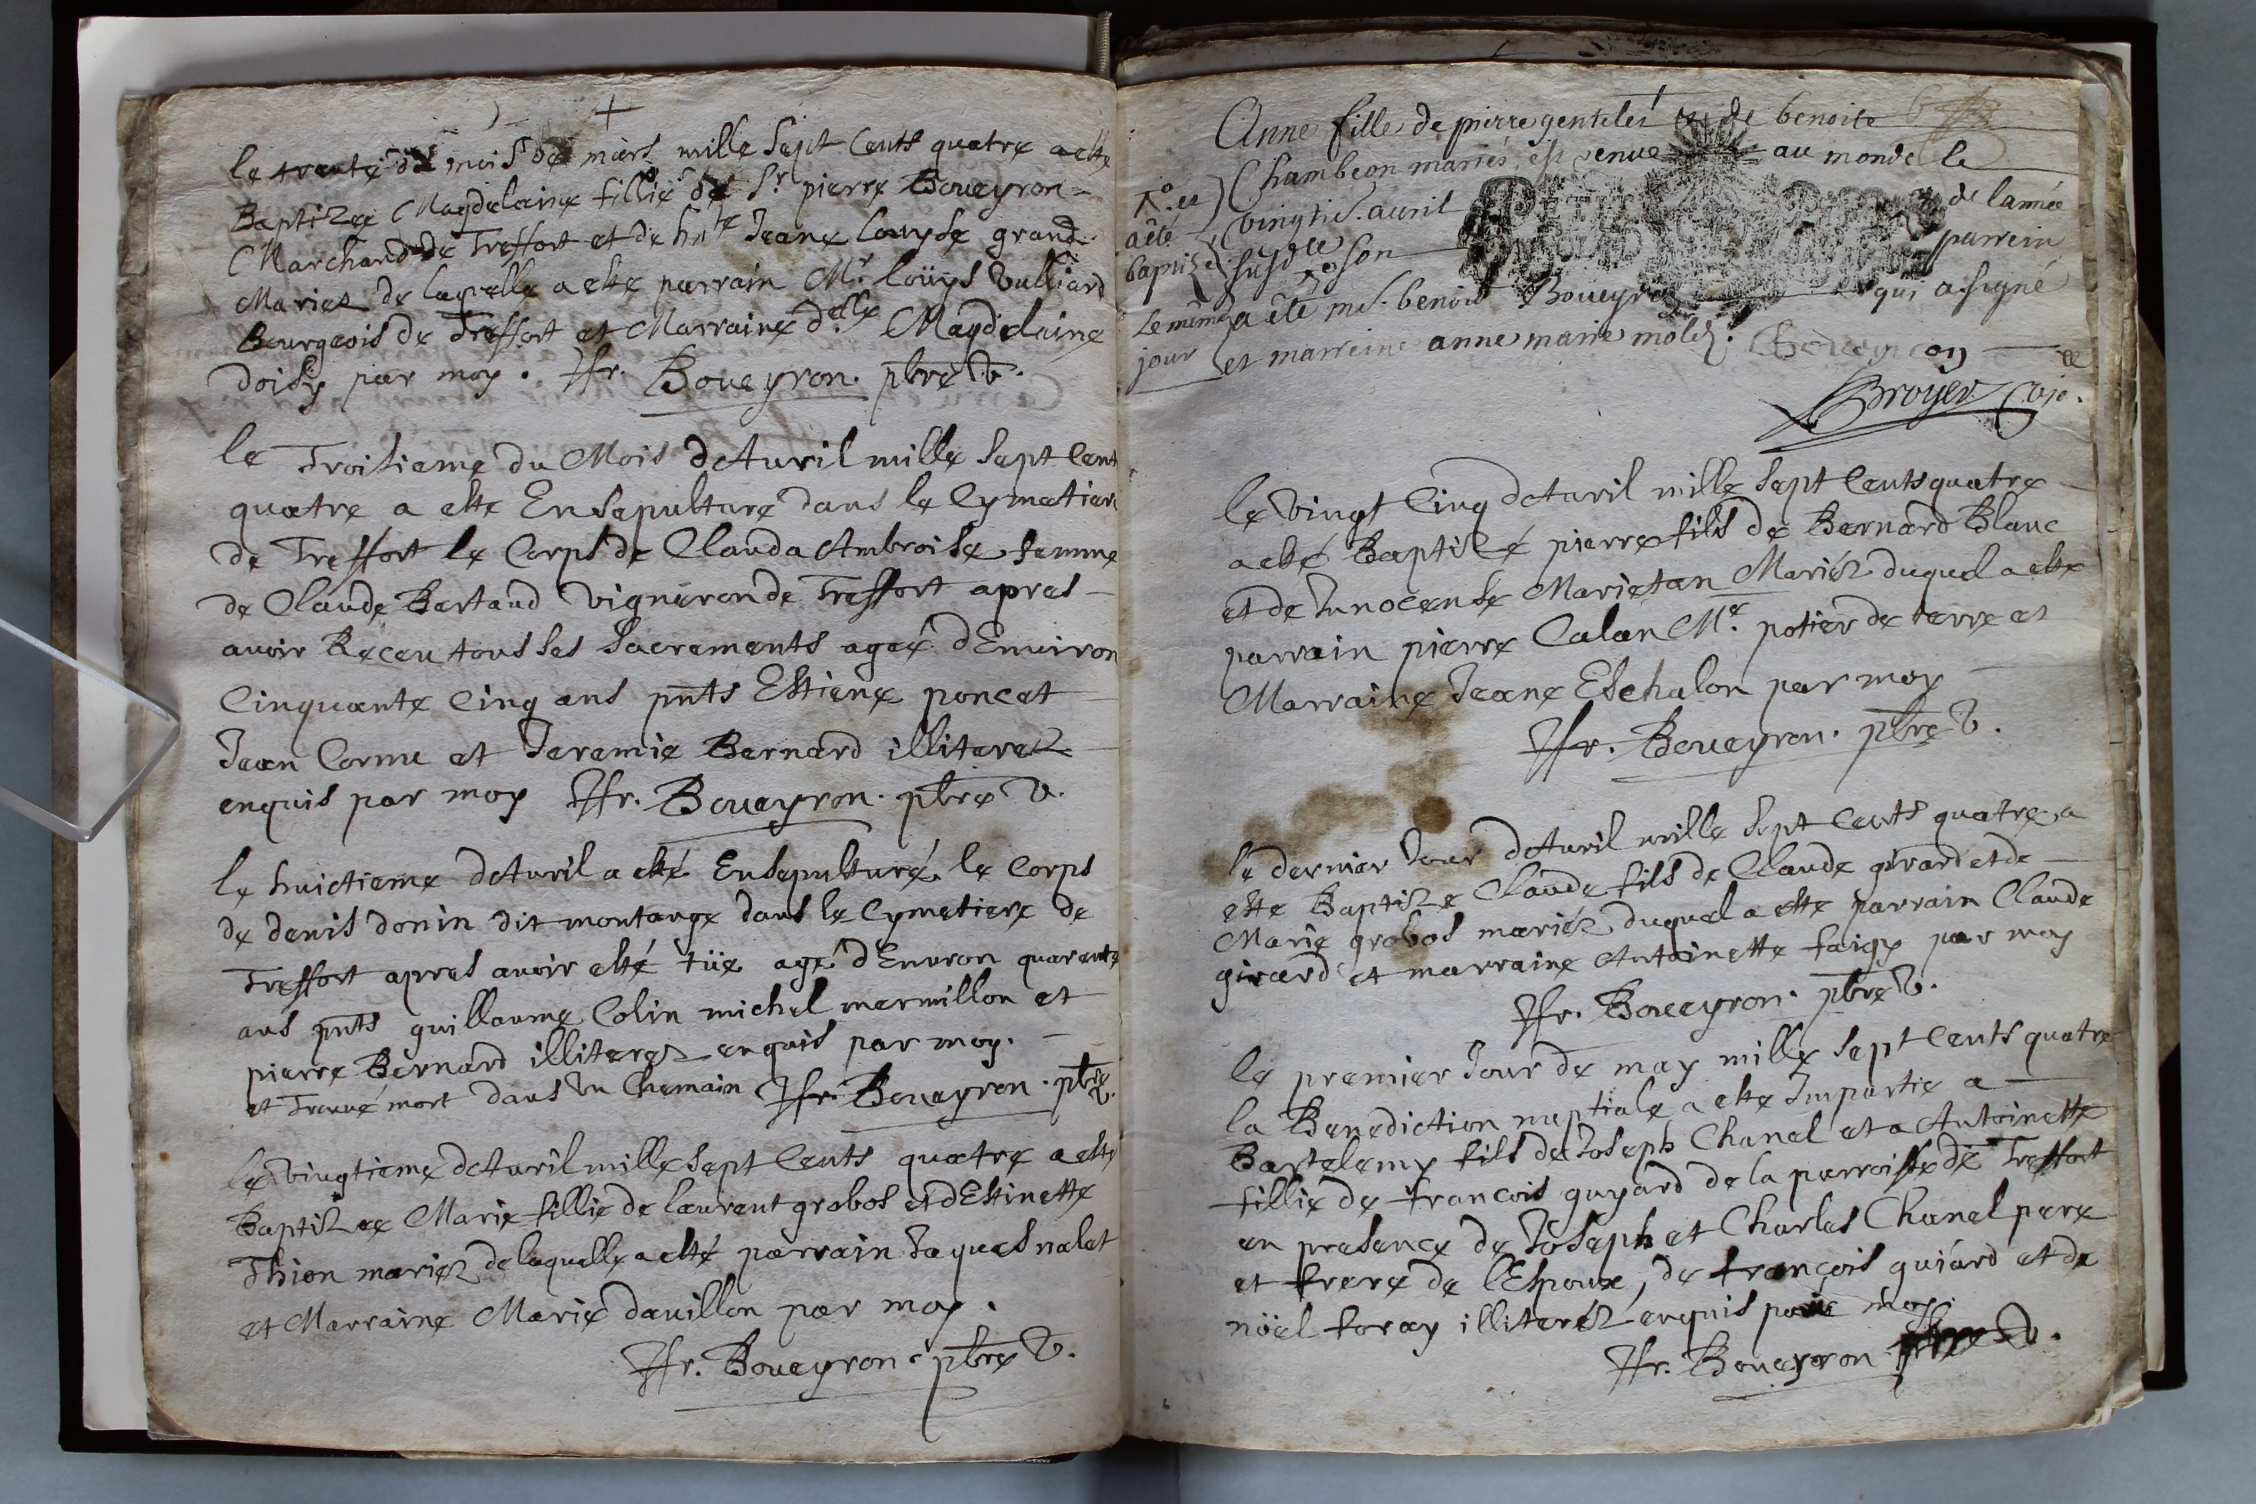 le trente du mois de mars mille Sept Cents quatre a este
Baptizee Magdelaine fillie de Sr. pierre Boueyron
Marchand de Treffort et de hnte Jeane Louyse grand
Mariez de laquelle a este parrain Mr. loüys Vulliard
Bourgeois de Treffort et Marraine delle Magdelaine
doisy par moy. Jfr Boueyron. pbre V.
le Troisieme du Mois dAuril mille Sept Cent
quatre a este Ensepulture dans le Cymetiere
de Treffort le Corps de Clauda Ambroise femme
de Claude Bertaud Vigneron de Treffort apres
auoir Receu tous ses Sacrements ageé dEnuiron
Cinquante Cinq ans pnts Estiene poncet
Jean Cornu et Jeremie Bernard illiterez
enquis par moy Jfr. Boueyron. pbre V.
le huictieme dAuril a esté Ensepulturé le Corps
de denis donin dit montange dans le Cymetiere de
Treffort apres auoir esté tüe agé dEnuron quarente
ans pnts guillaume Colin michel mermillon et
pierre Bernard illiterez enquis par moy.
et Trouué mort dans vn Chemain Jfr. Boueyron. pbre V.
le vingtieme dAuril mille Sept Cents quatre a este
Baptizee Marie fillie de laurent grobos et dEstinette
Thion mariez de laquelle a esté parrain Jaques nalet
et Marraine Marie dauillon par moy.
Jfr. Boueyron. pbre V.
Anne fille de pierre gentelei et de benoite
Chambeon mariés, est venue au monde le
vingtie. auril de lannée
susdte son parrein
a été mr. benoit Boueyron qui a signé
et marreine anne marie molez. Boueyron
et
a été
baptizé
le même
jour
Broyer
le Vingt Cinq dAuril mille Sept Cents quatre
a esté Baptizé pierre fils de Bernard Blanc
et de Innocense Marietan Mariéz duquel a este
parrain pierre Calan Me. potier de terre et
Marraine Jeane Eschalon par moy
Jfr. Boueyron. pbre V.
le dernier Jour dAuril mille Sept Cents quatre a
este Baptize Claude fils de Claude girard et de
Marie grobos mariéz duquel a este parrain Claude
girard et marraine Antoinette faigy par moy
Jfr. Boueyron. pbre V.
le premier Jour de may mille Sept Cents quatre
la Benediction nuptiale a este Impartie a
Bartelemy fils de Joseph Chanel et a Antoinette
fillie de francois guyard de la parroisse de Treffort
en presence de Joseph et Charles Chanel pere
et frere de lEspoux, de françois guiard et de
nöel foray illiteréz enquis par moy.
Jfr. Boueyron pbre V.